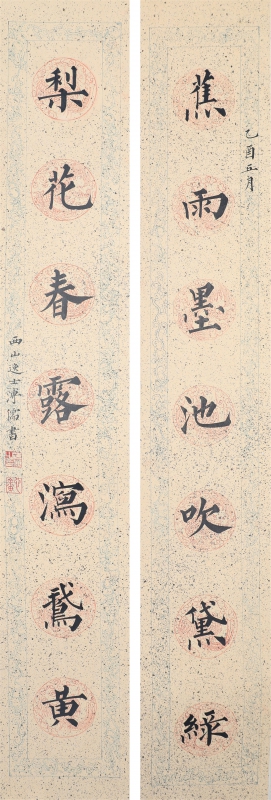 蕉雨墨池吹黛綠
乙酉五月
梨花春露瀉鵞黃
西山逸士溥儒書